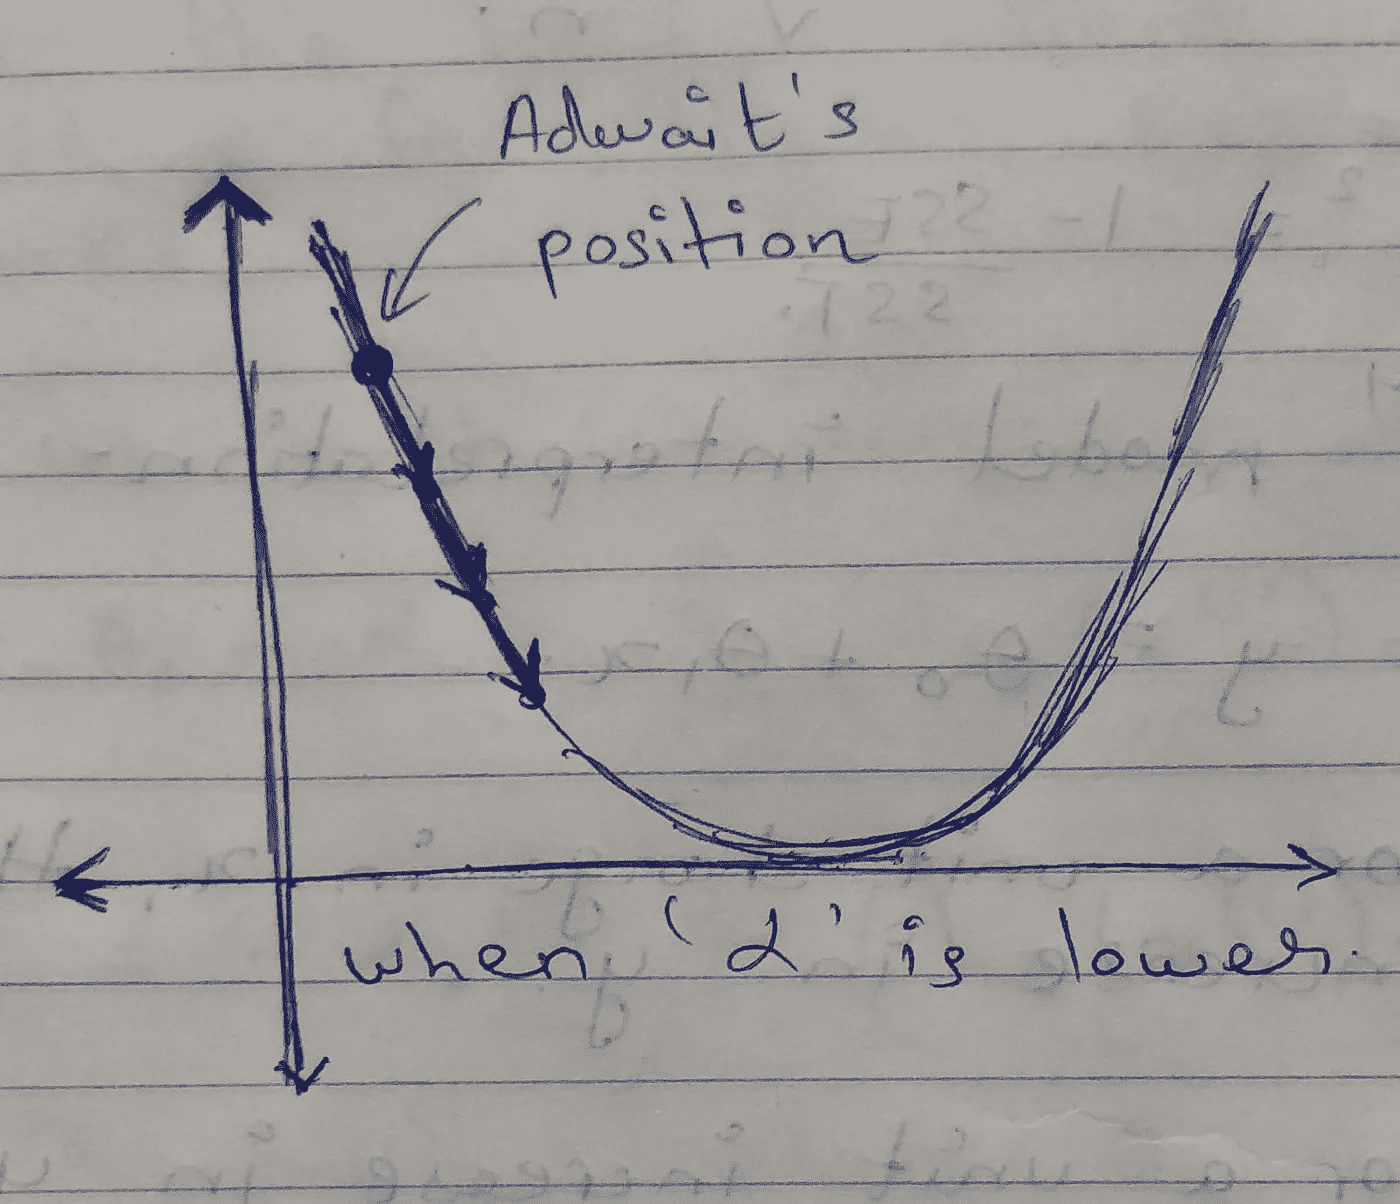 Adwait's
position
when 'α' is lower.